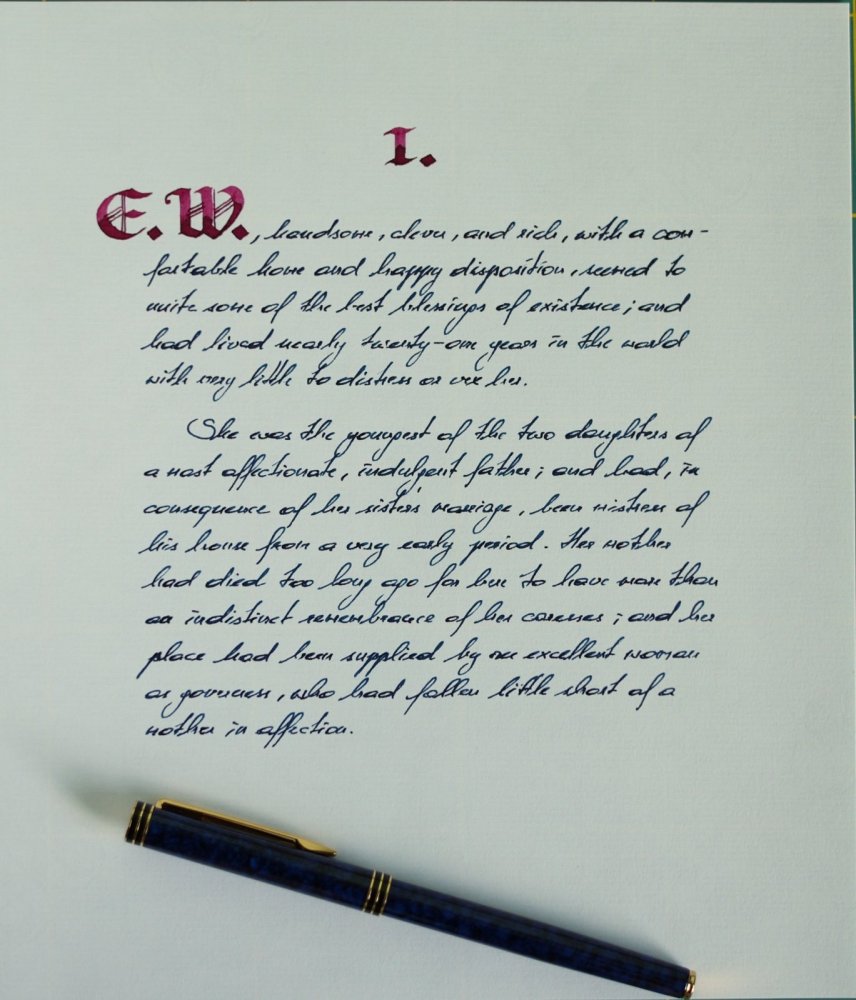 I.
E. W., handsome, clever, and rich, with a com-
fortable home and happy disposition, seemed to
unite some of the best blessings of existence; and
had lived nearly twenty-one years in the world
with very little to distress or vex her.
She was the youngest of the two daughters of
a most affectionate, indulgent father; and had, in
consequence of her sister's marriage, been mistress of
his house from a very early period. Her mother
had died too long ago for her to have more than
an indistinct remembrance of her caresses; and her
place had been supplied by an excellent woman
as governess, who had fallen little short of a
mother in affection.